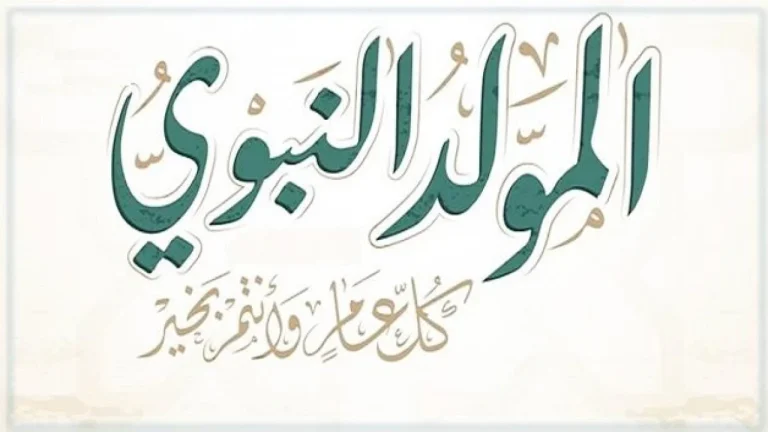 المَوْلِدُ النَبَوْيُّ
كُلُّ عَامٍ وَأَنْتُمْ بَخَيْرٍ